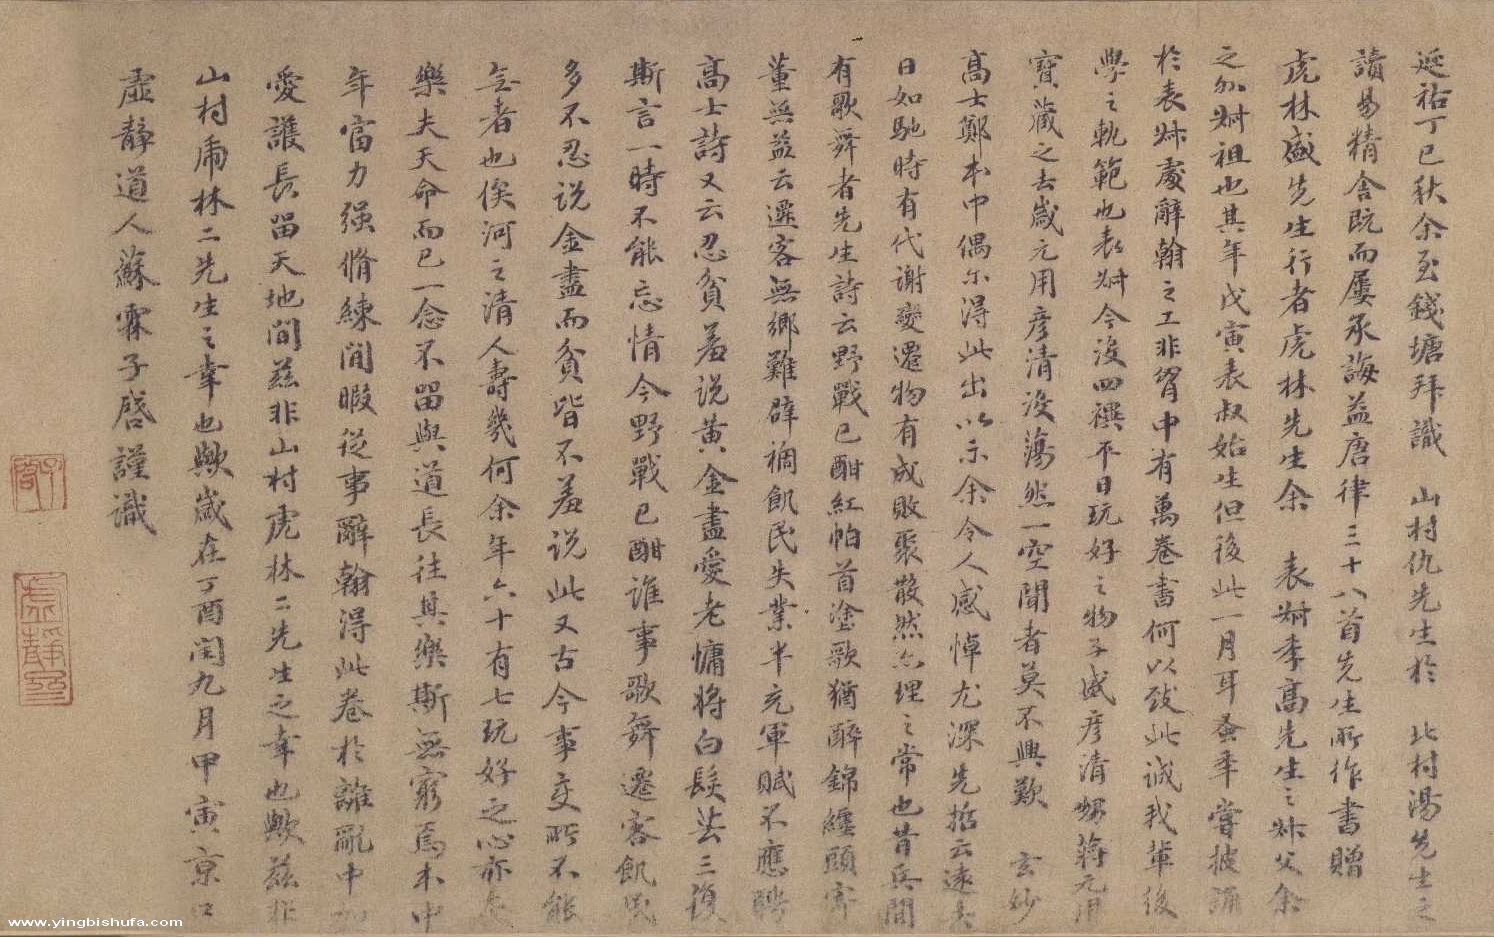 延祐丁巳秋余至錢塘拜識 山村仇先生於 北村湯先生之
讀易精舍既而屢承誨益唐律三十八首先生所作書贈
虎林盛先生行者虎林先生余 表叔季高先生之叔父余
之外叔祖也其年戊寅表叔始生但後此一月耳蚤年嘗披誦
於表叔處辭翰之工非胷中有萬卷書何以致此誠我輩後
學之軌範也表叔今沒四禩平日玩好之物子盛彦清甥蔣元用
寶藏之去歲元用彦清沒蕩然一空聞者莫不興歎 玄妙
高士鄭本中偶尔得此出以示余令人感悼尤深先哲云逺去
日如馳時有代謝變遷物有成敗聚散然亦理之常也昔兵間
有歌舞者先生詩云野戰已酣紅帕首塗歌猶醉錦纏頭寄
董無益云遷客無鄉難辟禍飢民失業半充軍賦不應聘
高士詩又云忍貧羞說黄金盡愛老慵將白髮芸三復
斯言一時不能忘情今野戰已酣誰事歌舞遷客飢民
多不忍说金盡而貧皆不羞说此又古今事变所不能
免者也俟河之清人壽幾何余年六十有七玩好之心亦衰
樂夫天命而已一念不留與道長往其樂斯無窮焉本中
年富力强脩練閒暇從事辭翰得此卷於離亂中加
愛護長留天地間兹非山村虎林二先生之幸也歟兹非
山村虎林二先生之幸也歟歲在丁酉閏九月甲寅京口
虛靜道人蘇霖子啓謹識
子啓
虛靜
www.yingbishufa.com